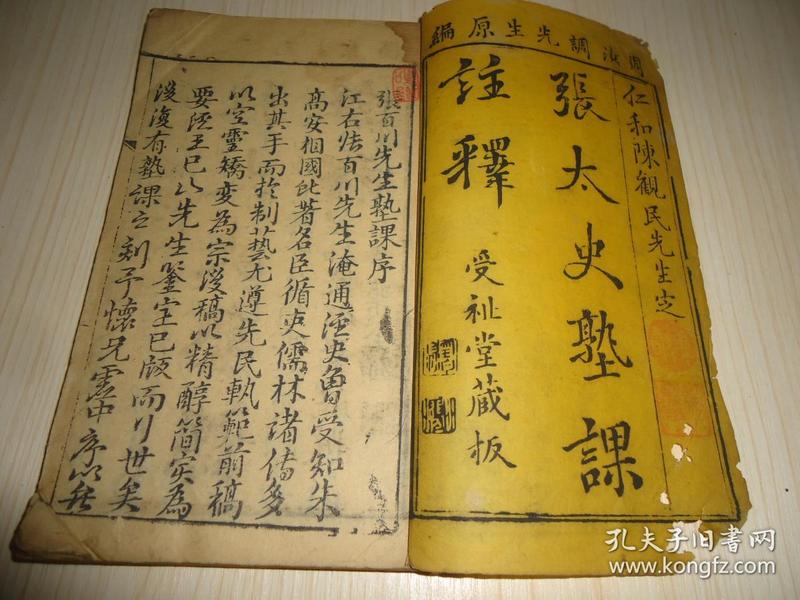 周汝調先生原編
仁和陳觀民先生定
張太史塾課
註釋
受祉堂藏板
張百川先生塾課序
江右張百川先生淹通經史魯受知朱
高安相國此著名臣循吏儒林諸傳多
出其手而於制藝尤遵先民軌範前稿
以空靈矯變為宗後稿以精醇簡實為
要陸王巳以先生鑒定巳版而行世矣
後復有塾課之刻予懷兄雲中序以
孔夫子旧书网
www.kongfz.com